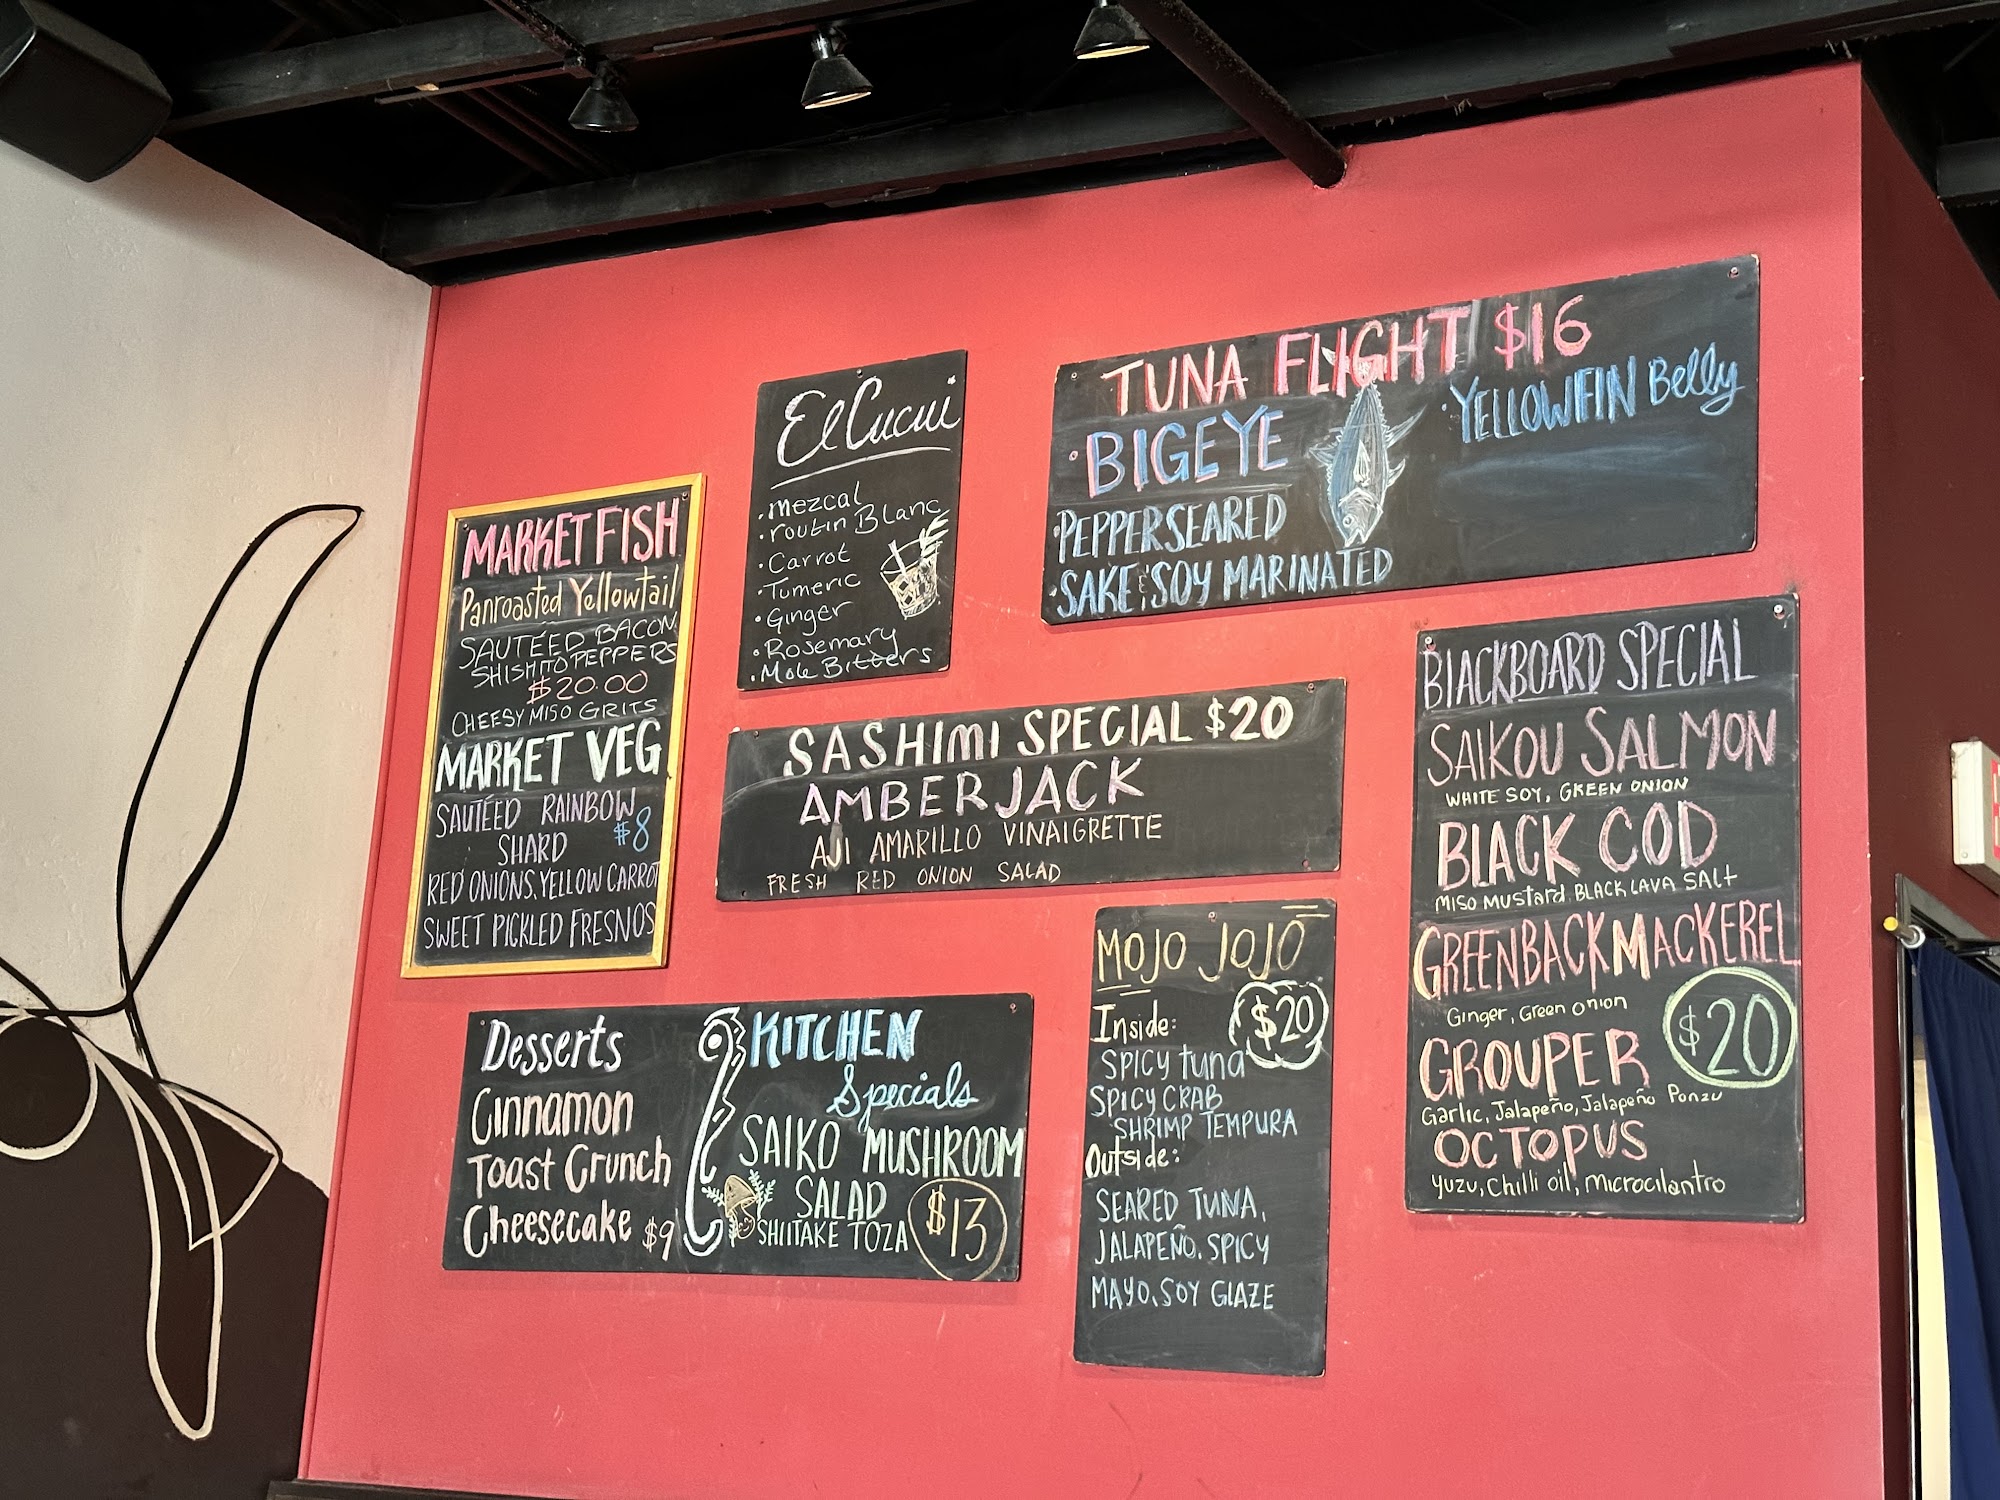 MARKET FISH
Panroasted Yellowtail
SAUTÉED BACON,
SHISHITO PEPPERS
$20.00
CHEESY MISO GRITS
MARKET VEG
SAUTÉED RAINBOW
SHARD $8
RED ONIONS, YELLOW CARROT
SWEET PICKLED FRESNOS
El Cucui
• Mezcal
• routin Blanc
• Carrot
• Tumeric
• Ginger
• Rosemary
• Mole Bitters
TUNA FLIGHT $16
• BIGEYE
• YELLOWFIN Belly
• PEPPERSEARED
• SAKE & SOY MARINATED
SASHIMI SPECIAL $20
AMBERJACK
AJI AMARILLO VINAIGRETTE
FRESH RED ONION SALAD
BLACKBOARD SPECIAL
SAIKOU SALMON
WHITE SOY, GREEN ONION
BLACK COD
MISO MUSTARD, BLACK LAVA SALT
GREENBACK MACKEREL
Ginger, Green onion
$20
GROUPER
Garlic, Jalapeño, Jalapeño Ponzu
OCTOPUS
Yuzu, Chilli oil, Microcilantro
Desserts
Cinnamon
Toast Crunch
Cheesecake $9
KITCHEN
Specials
SAIKO MUSHROOM
SALAD
SHIITAKE TOZA
$13
MOJO JOJO
Inside:
$20
SPICY tuna
SPICY CRAB
SHRIMP TEMPURA
Outside:
SEARED TUNA,
JALAPEÑO, SPICY
MAYO, SOY GLAZE